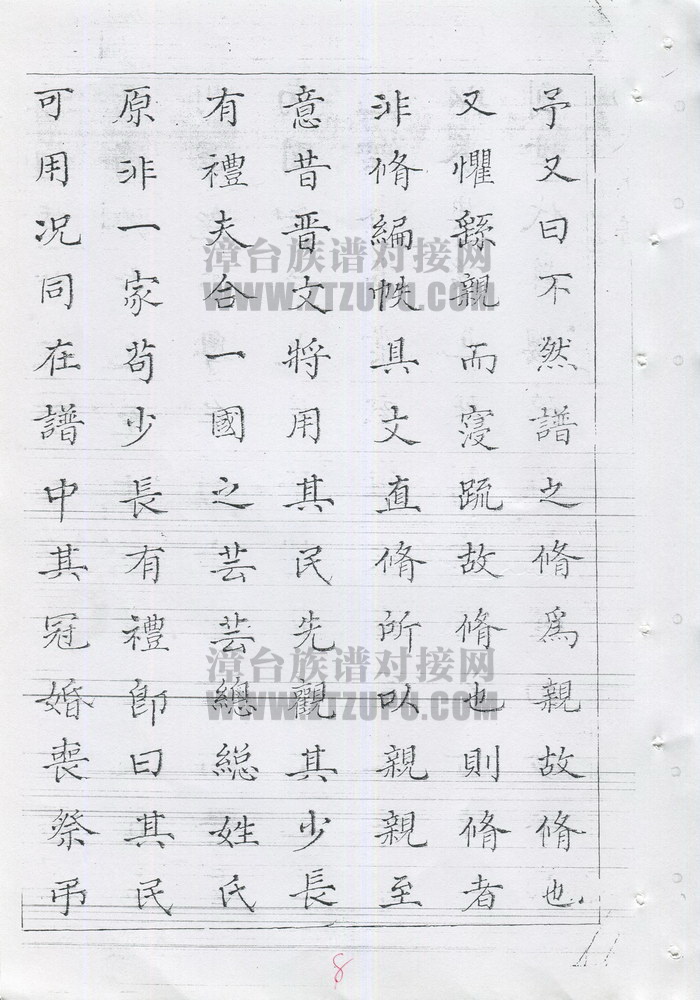 予又曰不然譜之脩為親故脩也
又懼繇親而寖疏故脩也則脩者
非脩編帙具文直脩所以親親至
意昔晋文將用其民先觀其少長
有禮夫合一國之芸芸總總姓氏
原非一家苟少長有禮卽曰其民
可用况同在譜中其冠婚喪祭弔
漳台族谱对接网
WWW.ZTZUPU.COM
漳台族谱对接网
WWW.ZTZUPU.COM
8